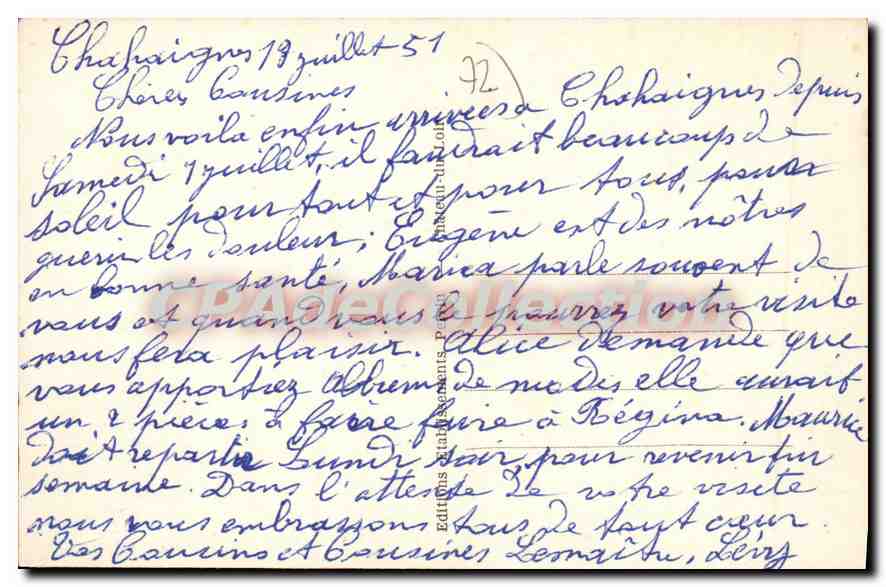 Chahaignes 19 juillet 51
72
Chères Cousines
Nous voilà enfin arrivées a Chahaignes depuis
Samedi 7 juillet, il faudrait beaucoup de
soleil pour tout et pour tous, pour
guerir les douleur; Eugène est des nôtres
en bonne santé, Marica parle souvent de
vous et quand vous le pourrez votre visite
nous fera plaisir. Alice demande que
vous apportiez Album de modes elle aurait
un 2 pièces à faire faire à Régina. Maurice
doit repartir Lundi soir pour revenir fin
semaine. Dans l'attente de votre visite
nous vous embrassons tous de tout cœur
Vos Cousins et Cousines Lemaître, Lévy
Editions Etablissements Château-du-Loir
CPAdeCollection